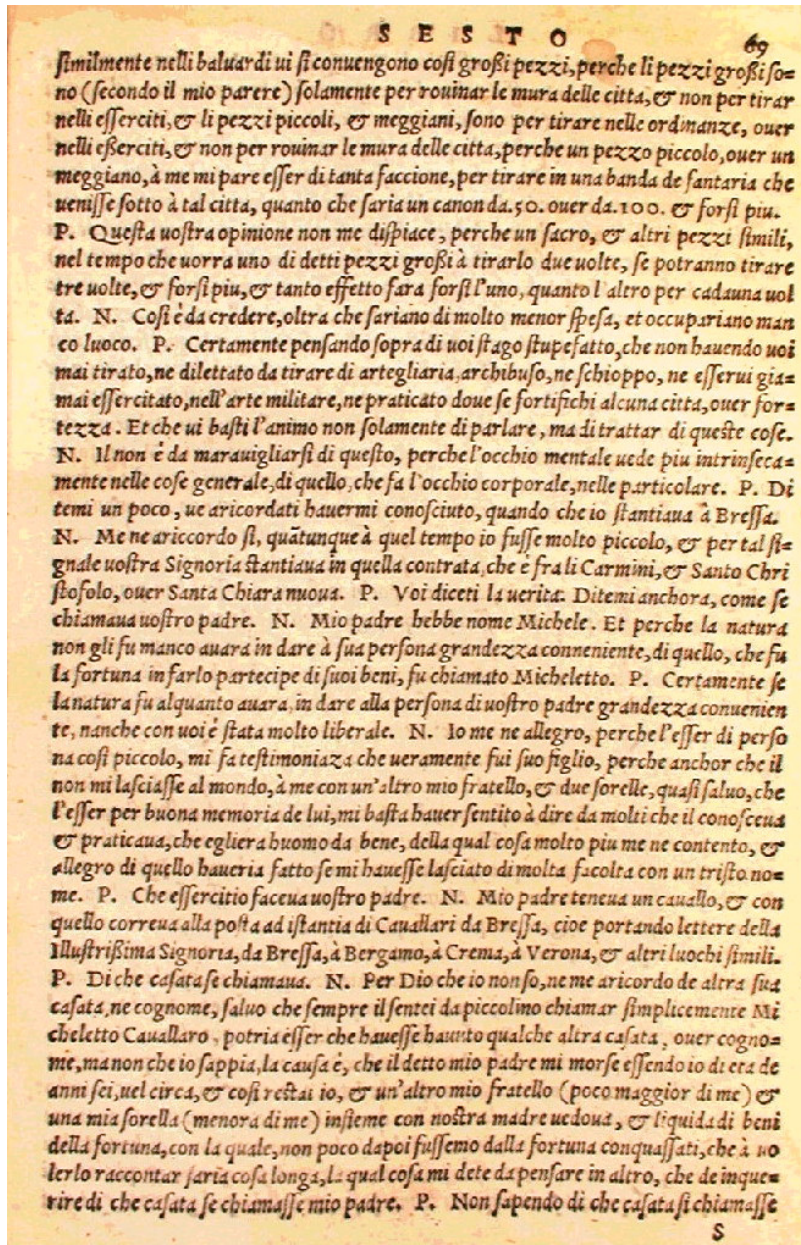 SESTO 69
ſimilmente nelli baluardi ui ſi conuengono coſi großi pezzi, perche li pezzi großi ſo-
no (ſecondo il mio parere) ſolamente per rouinar le mura delle citta, & non per tirar
nelli eſſerciti, & li pezzi piccoli, & meggiani, ſono per tirare nelle ordinanze, ouer
nelli eßerciti, & non per rouinar le mura delle citta, perche un pezzo piccolo, ouer un
meggiano, à me mi pare eſſer di tanta faccione, per tirare in una banda de fantaria che
ueniſſe ſotto à tal citta, quanto che ſaria un canon da.50. ouer da.100. & forſi piu.
P. Queſta uoſtra opinione non me diſpiace, perche un ſacro, & altri pezzi ſimili,
nel tempo che uorra uno di detti pezzi großi à tirarlo due uolte, ſe potranno tirare
tre uolte, & forſi piu, & tanto effetto fara forſi l'uno, quanto l altro per cadauna uol
ta. N. Coſi é da credere, oltra che ſariano di molto menor ſpeſa, et occupariano man
co luoco. P. Certamente penſando ſopra di uoi ſtago ſtupefatto, che non hauendo uoi
mai tirato, ne dilettato da tirare di artegliaria, archibuſo, ne ſchioppo, ne eſſerui gia-
mai eſſercitato, nell'arte militare, ne praticato doue ſe fortifichi alcuna citta, ouer for-
tezza. Et che ui baſti l'animo non ſolamente di parlare, ma di trattar di queſte coſe.
N. Il non é da marauigliarſi di queſto, perche l'occhio mentale uede piu intrinſeca-
mente nelle coſe generale, di quello, che fa l'occhio corporale, nelle particolare. P. Di
temi un poco, ue aricordati hauermi conoſciuto, quando che io ſtantiaua à Breſſa.
N. Me ne ariccordo ſi, quātunque à quel tempo io fuſſe molto piccolo, & per tal ſi-
gnale uoſtra Signoria ſtantiaua in quella contrata, che é fra li Carmini, & Santo Chri
ſtofolo, ouer Santa Chiara nuoua. P. Voi diceti la uerita. Ditemi anchora, come ſe
chiamaua uoſtro padre. N. Mio padre hebbe nome Michele. Et perche la natura
non gli fu manco auara in dare à ſua perſona grandezza conneniente, di quello, che fu
la fortuna in farlo partecipe di ſuoi beni, fu chiamato Micheletto. P. Certamente ſe
la natura fu alquanto auara, in dare alla perſona di uoſtro padre grandezza conuenien
te, nanche con uoi é ſtata molto liberale. N. Io me ne allegro, perche l'eſſer di perſo
na coſi piccolo, mi fa teſtimoniaza che ueramente fui ſuo figlio, perche anchor che il
non mi laſciaſſe al mondo, à me con un'altro mio fratello, & due ſorelle, quaſi ſaluo, che
l'eſſer per buona memoria de lui, mi baſta hauer ſentito à dire da molti che il conoſceua
& praticaua, che egli era huomo da bene, della qual coſa molto piu me ne contento, &
allegro di quello haueria fatto ſe mi haueſſe laſciato di molta facolta con un triſto no-
me. P. Che eſſercitio faceua uoſtro padre. N. Mio padre teneua un cauallo, & con
quello correua alla poſta ad iſtantia di Cauallari da Breſſa, cioe portando lettere della
Illuſtrißima Signoria, da Breſſa, à Bergamo, à Crema, à Verona, & altri luochi ſimili.
P. Di che caſata ſe chiamaua. N. Per Dio che io non ſo, ne me aricordo de altra ſua
caſata, ne cognome, ſaluo che ſempre il ſentei da piccolino chiamar ſimplicemente Mi
cheletto Cauallaro, potria eſſer che haueſſe hauuto qualche altra caſata, ouer cogno-
me, ma non che io ſappia, la cauſa é, che il detto mio padre mi morſe eſſendo io di eta de
anni ſei, uel circa, & coſi reſtai io, & un'altro mio fratello (poco maggior di me) &
una mia ſorella (menora di me) inſieme con noſtra madre uedoua, & liquida di beni
della fortuna, con la quale, non poco dapoi fuſſemo dalla fortuna conquaſſati, che à uo
lerlo raccontar ſaria coſa longa, la qual coſa mi dete da penſare in altro, che de inque-
rire di che caſata ſe chiamaſſe mio padre. P. Non ſapendo di che caſata ſi chiamaſſe
S